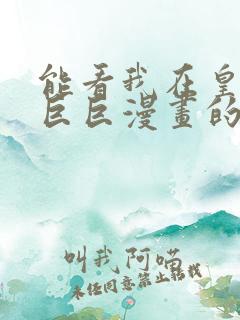 能看我在皇
巨巨漫畫的
叫我阿喵
未经同意禁止转载